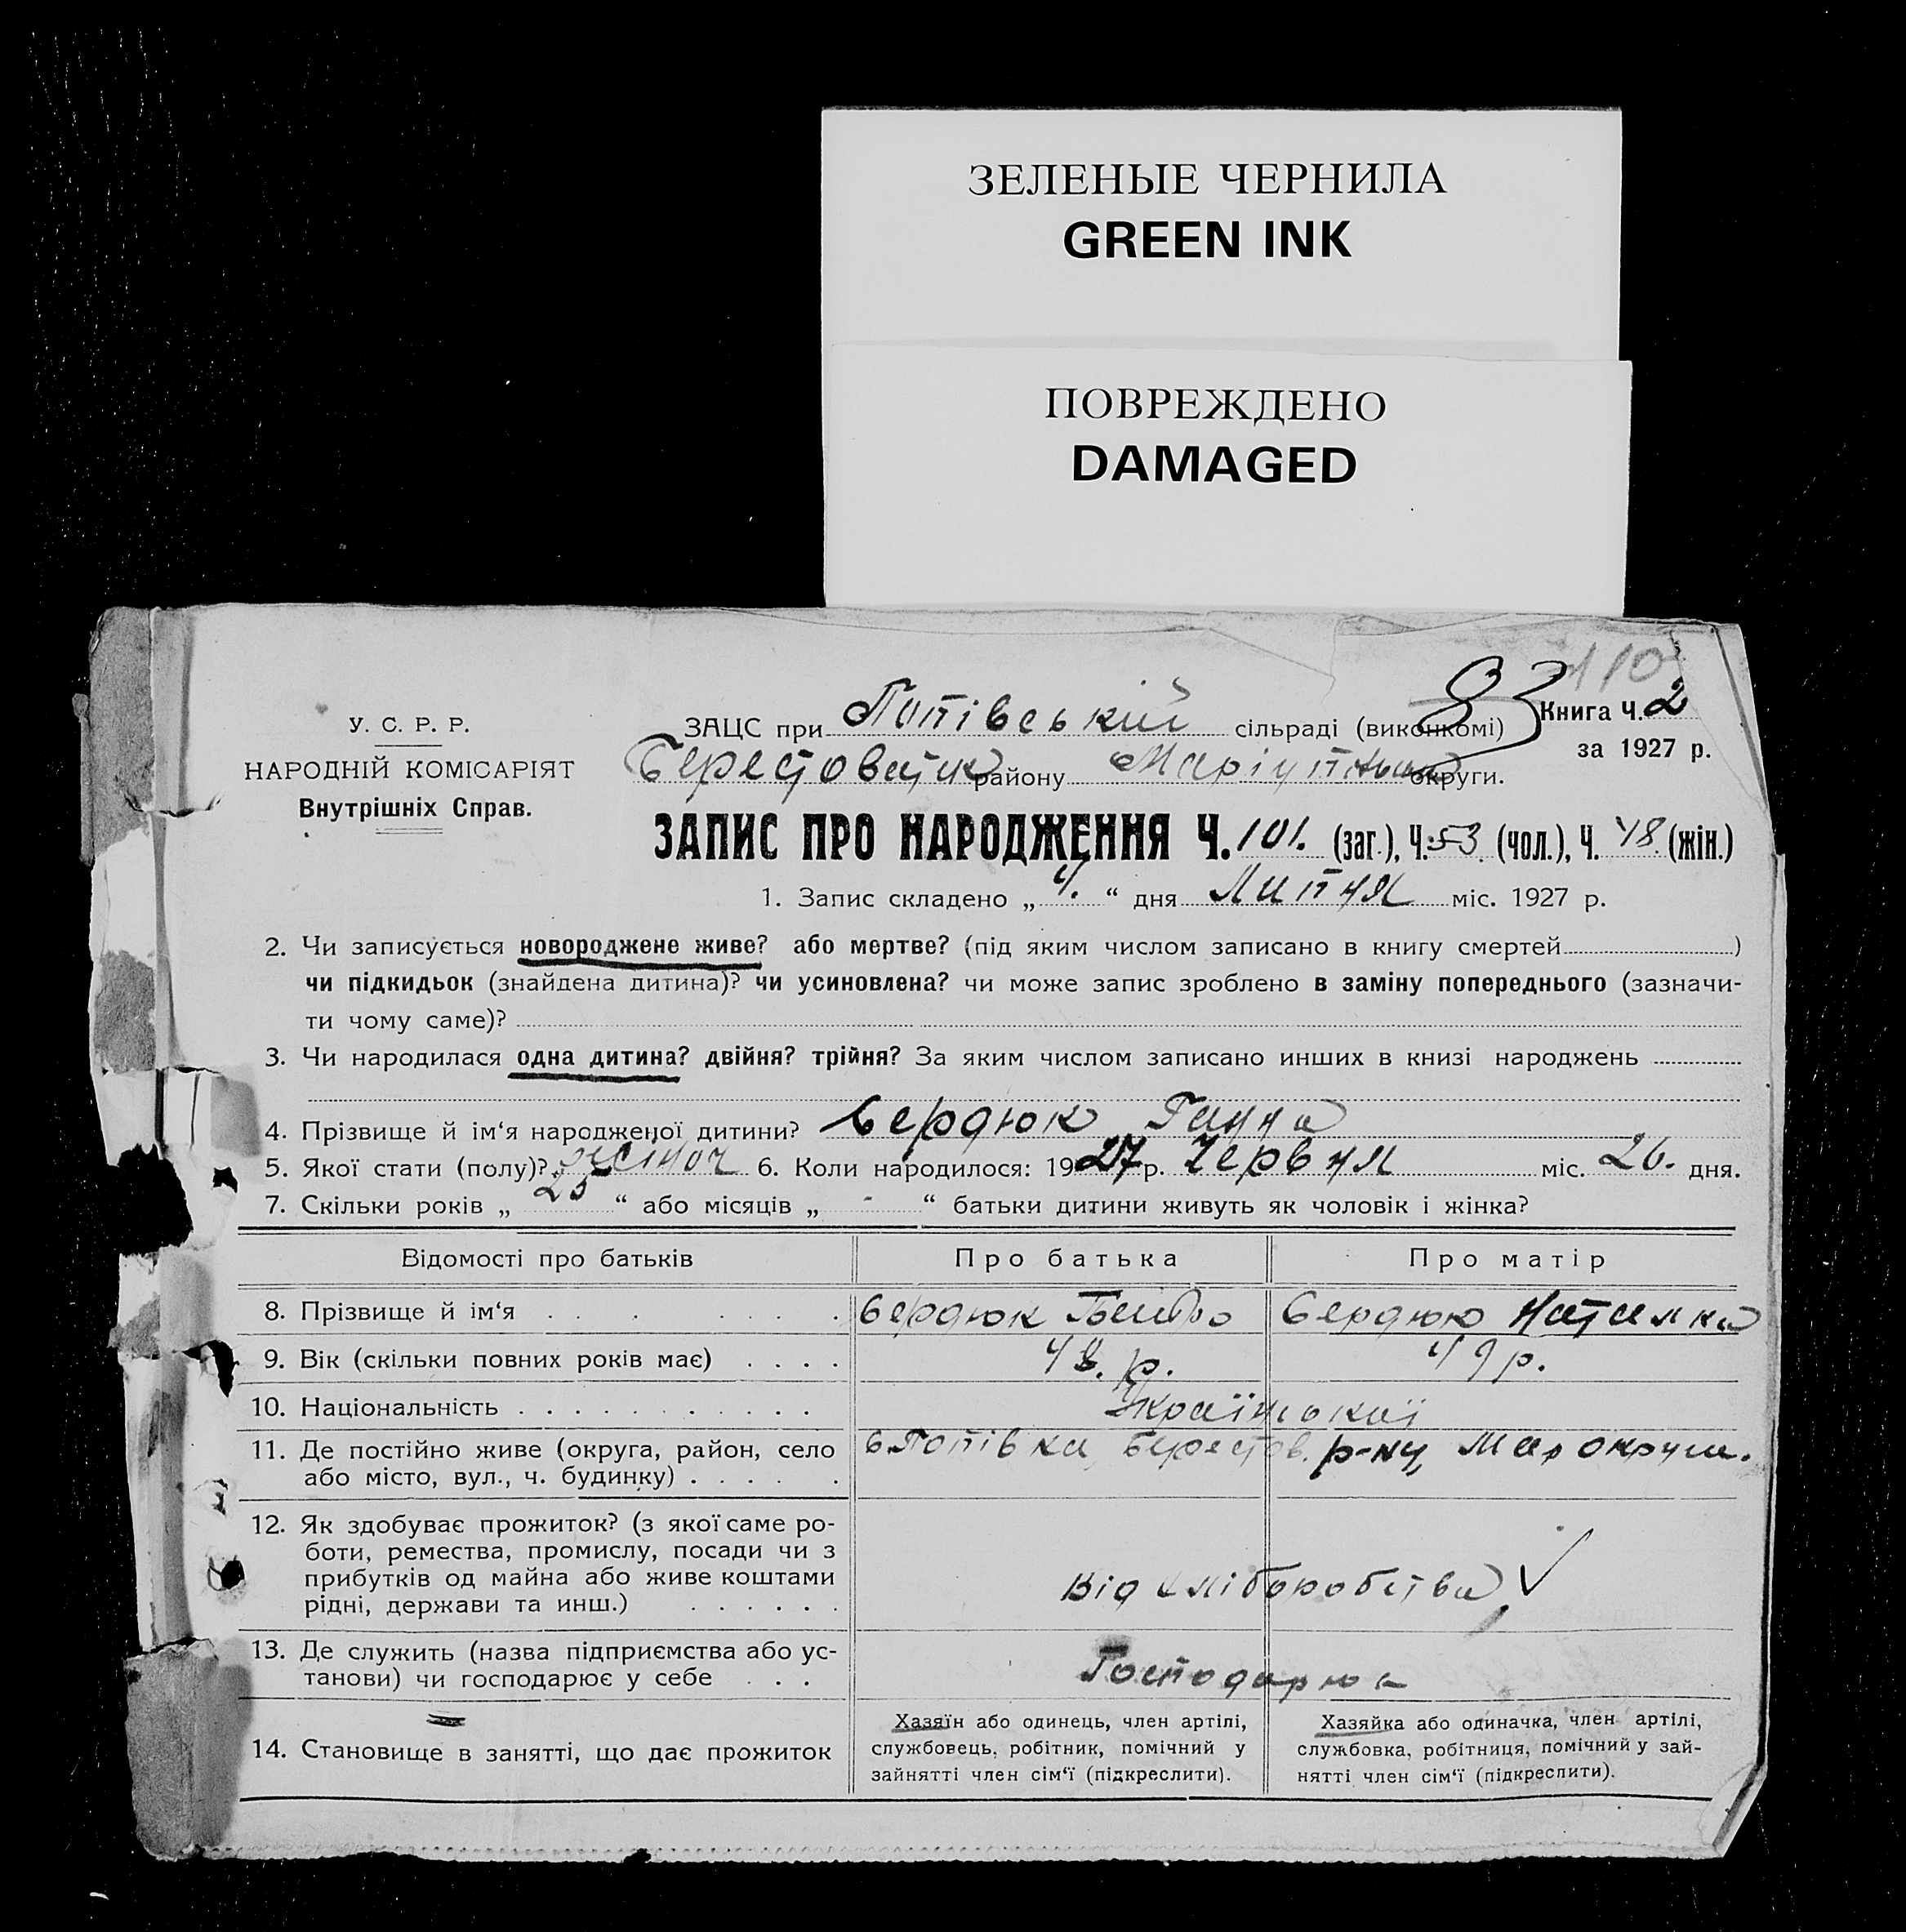 ЗЕЛЕНЫЕ ЧЕРНИЛА
GREEN INK
ПОВРЕЖДЕНО
DAMAGED
110
83
У. С. Р. Р.
НАРОДНІЙ КОМІСАРІЯТ
Внутрішніх Справ.
ЗАЦС при Попівський сільраді (виконкомі) Книга Ч. 2
за 1927 р.
району округи.
ЗАПИС ПРО НАРОДЖЕННЯ Ч. 101. (заг.), Ч. 53. (чол.), Ч. 48. (жін.)
1. Запис складено „ 4. “ дня Липня міс. 1927 р.
2. Чи записується новороджене живе? або мертве? (під яким числом записано в книгу смертей )
чи підкидьок (знайдена дитина)? чи усиновлена? чи може запис зроблено в заміну попереднього (зазначи-
ти чому саме)?
3. Чи народилася одна дитина? двійня? трійня? За яким числом записано инших в книзі народжень
4. Прізвище й ім‘я народженої дитини? Сердюк Ганна
5. Якої стати (полу)? жіноч 6. Коли народилося: 1927 р. Червня міс. 26. дня.
7. Скільки років „ 25 “ або місяців „ - “ батьки дитини живуть як чоловік і жінка?
Відомості про батьків Про батька Про матір
8. Прізвище й ім‘я Сердюк Сердюк Наталка
9. Вік (скільки повних років має) 48. р. 49 р.
10. Національність Української
11. Де постійно живе (округа, район, село с. Попівка, Берестов. р-ну, Мар округи.
або місто, вул., ч. будинку)
12. Як здобуває прожиток? (з якої саме ро-
боти, ремества, промислу, посади чи з
прибутків од майна або живе коштами Від хліборобства
рідні, держави та инш.)
13. Де служить (назва підприємства або ус-
танови) чи господарює у себе Господарює
14. Становище в занятті, що дає прожиток
Хазяїн або одинець, член артілі,
службовець, робітник, помічний у
зайнятті член сім‘ї (підкреслити).
Хазяйка або одиначка, член артілі,
службовка, робітниця, помічний у зай-
нятті член сім‘ї (підкреслити).